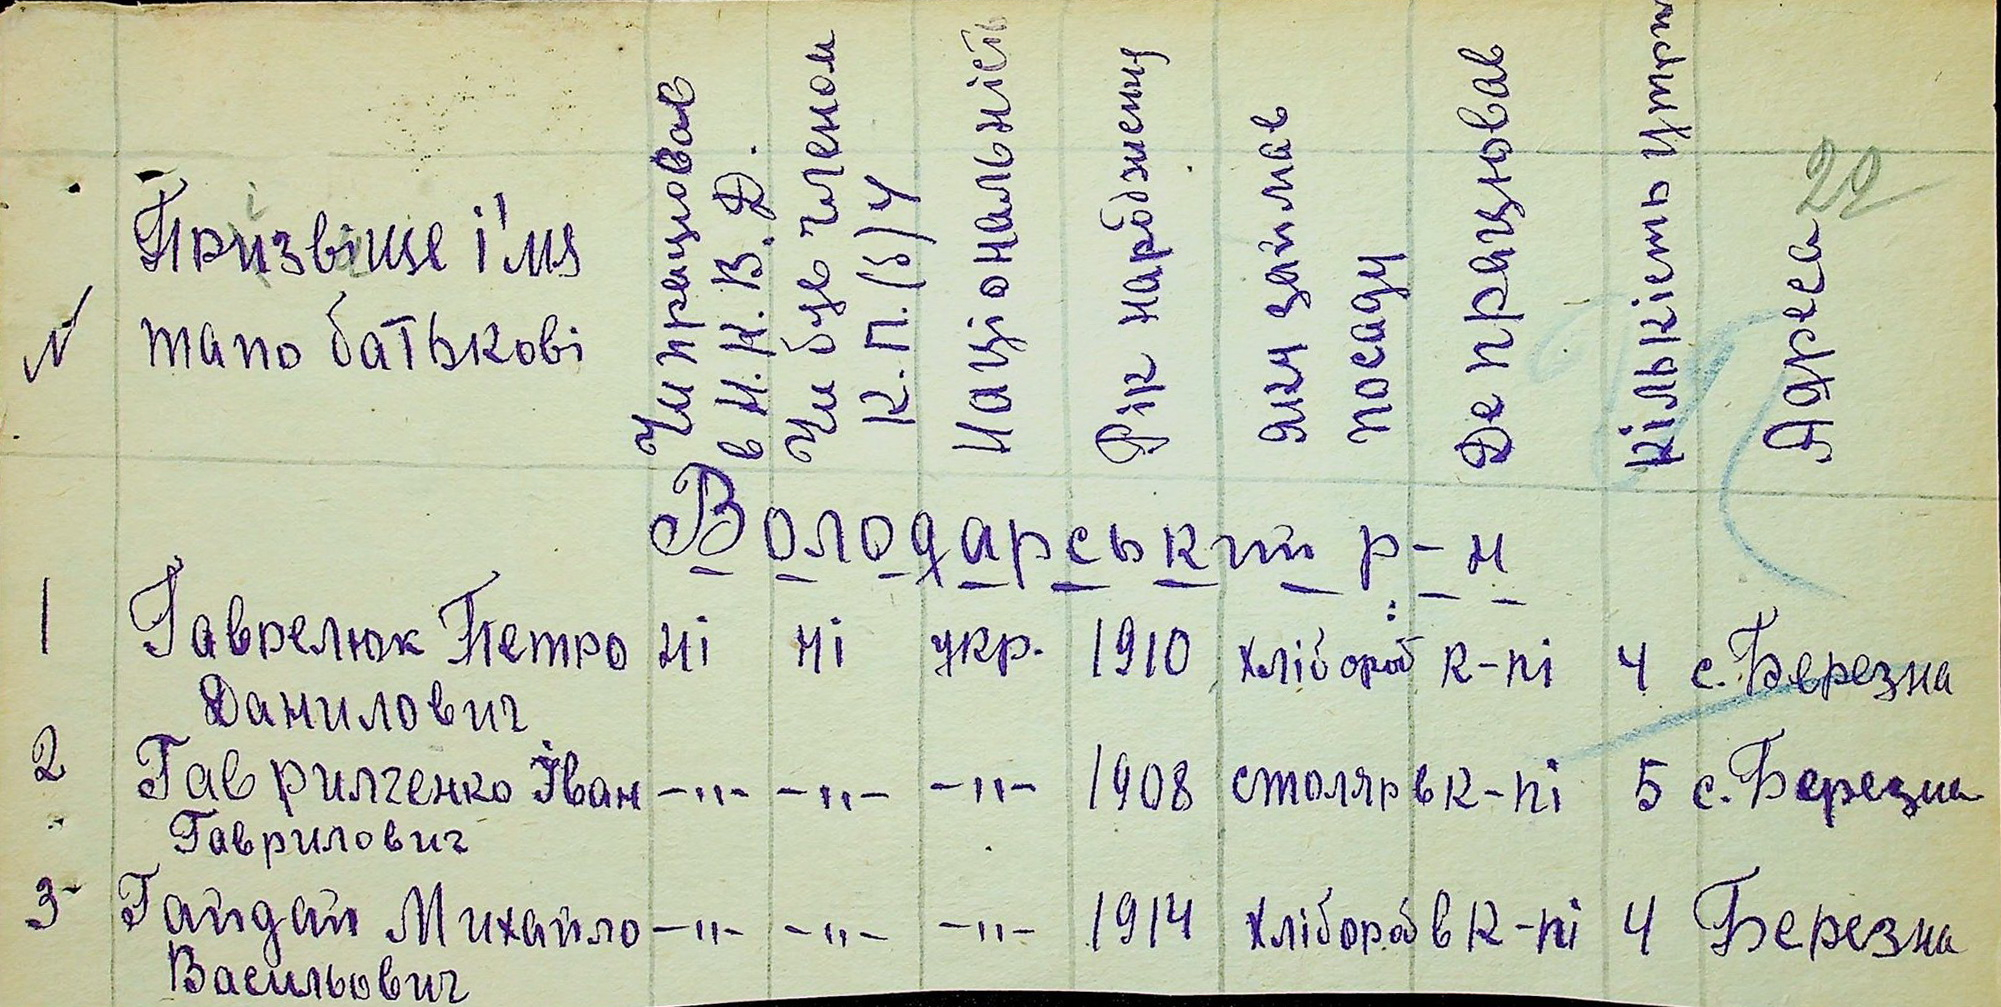 22
№
Прізвіще і'мя
тапо батькові
Чи працював
в Н.К.В.Д.
Чи був членом
К.П.(б)У
Національність
Рік народження
Яку займав
посаду
Де працював
Кількість утри
Адреса
Володарський р-н
1 Гаврелюк Петро ні ні укр. 1910 хлібороб к-пі 4 с. Березна
Данилович
2 Гаврилченко Іван -"- -"- -"- 1908 столяр в к-пі 5 с. Березна
Гаврилович
3 Гайдай Михайло -"- -"- -"- 1914 хлібороб в к-пі 4 Березна
Васильович